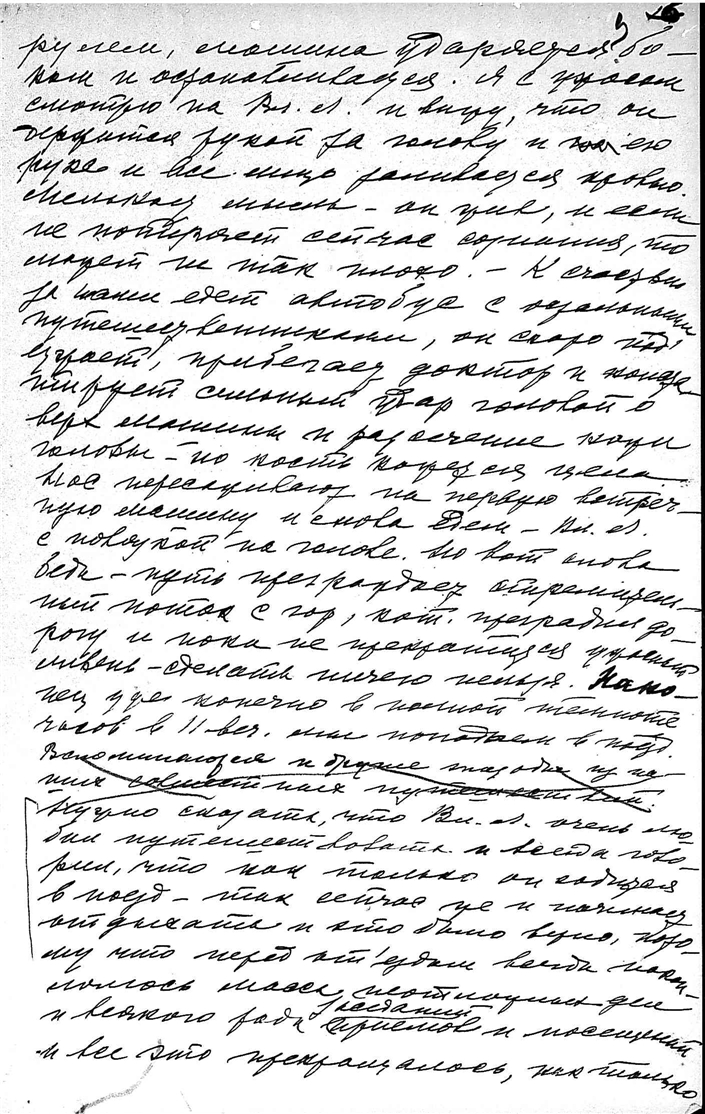 16
рулем, машина ударяется бо-
ком и останавливается. Я с ужасом
смотрю на Вл. А. и вижу, что он
держится рукой за голову и по его
руке и все лицо заливается кровью.
Мелькает мысль – он жив, и если
не потеряет сейчас сознания, то
может не так плохо. – К счастью
за нами едет автобус с остальными
путешественниками, он скоро подъ
езжает, прибегает доктор и конста
тирует сильный удар головой о
верх машины и рассечение кожи
головы – но кость кажется цела.
Нас пересаживают на первую встреч-
ную машину и снова едем – Вл. А.
с повязкой на голове. Но вот снова
беда – путь преграждает стремитель-
ный поток с гор, кот. преградил до-
рогу и пока не прекратится ужасный
ливень – сделать ничего нельзя. Нако-
нец уже конечно в полной темноте
часов в 11 веч. мы попадаем в поезд.
Вспоминаются и другие эпизоды из на-
ших совместных путешествий.
Нужно сказать, что Вл. А. очень лю
бил путешествовать и всегда гово-
рил, что как только он садится
в поезд – так сейчас же и начинает
отдыхать и это было верно, пото-
му что перед от'ездом всегда накап-
ливалось масса неотложных дел
заседаний
и всякого рода приемов и посещений
и все это прекращалось, как только